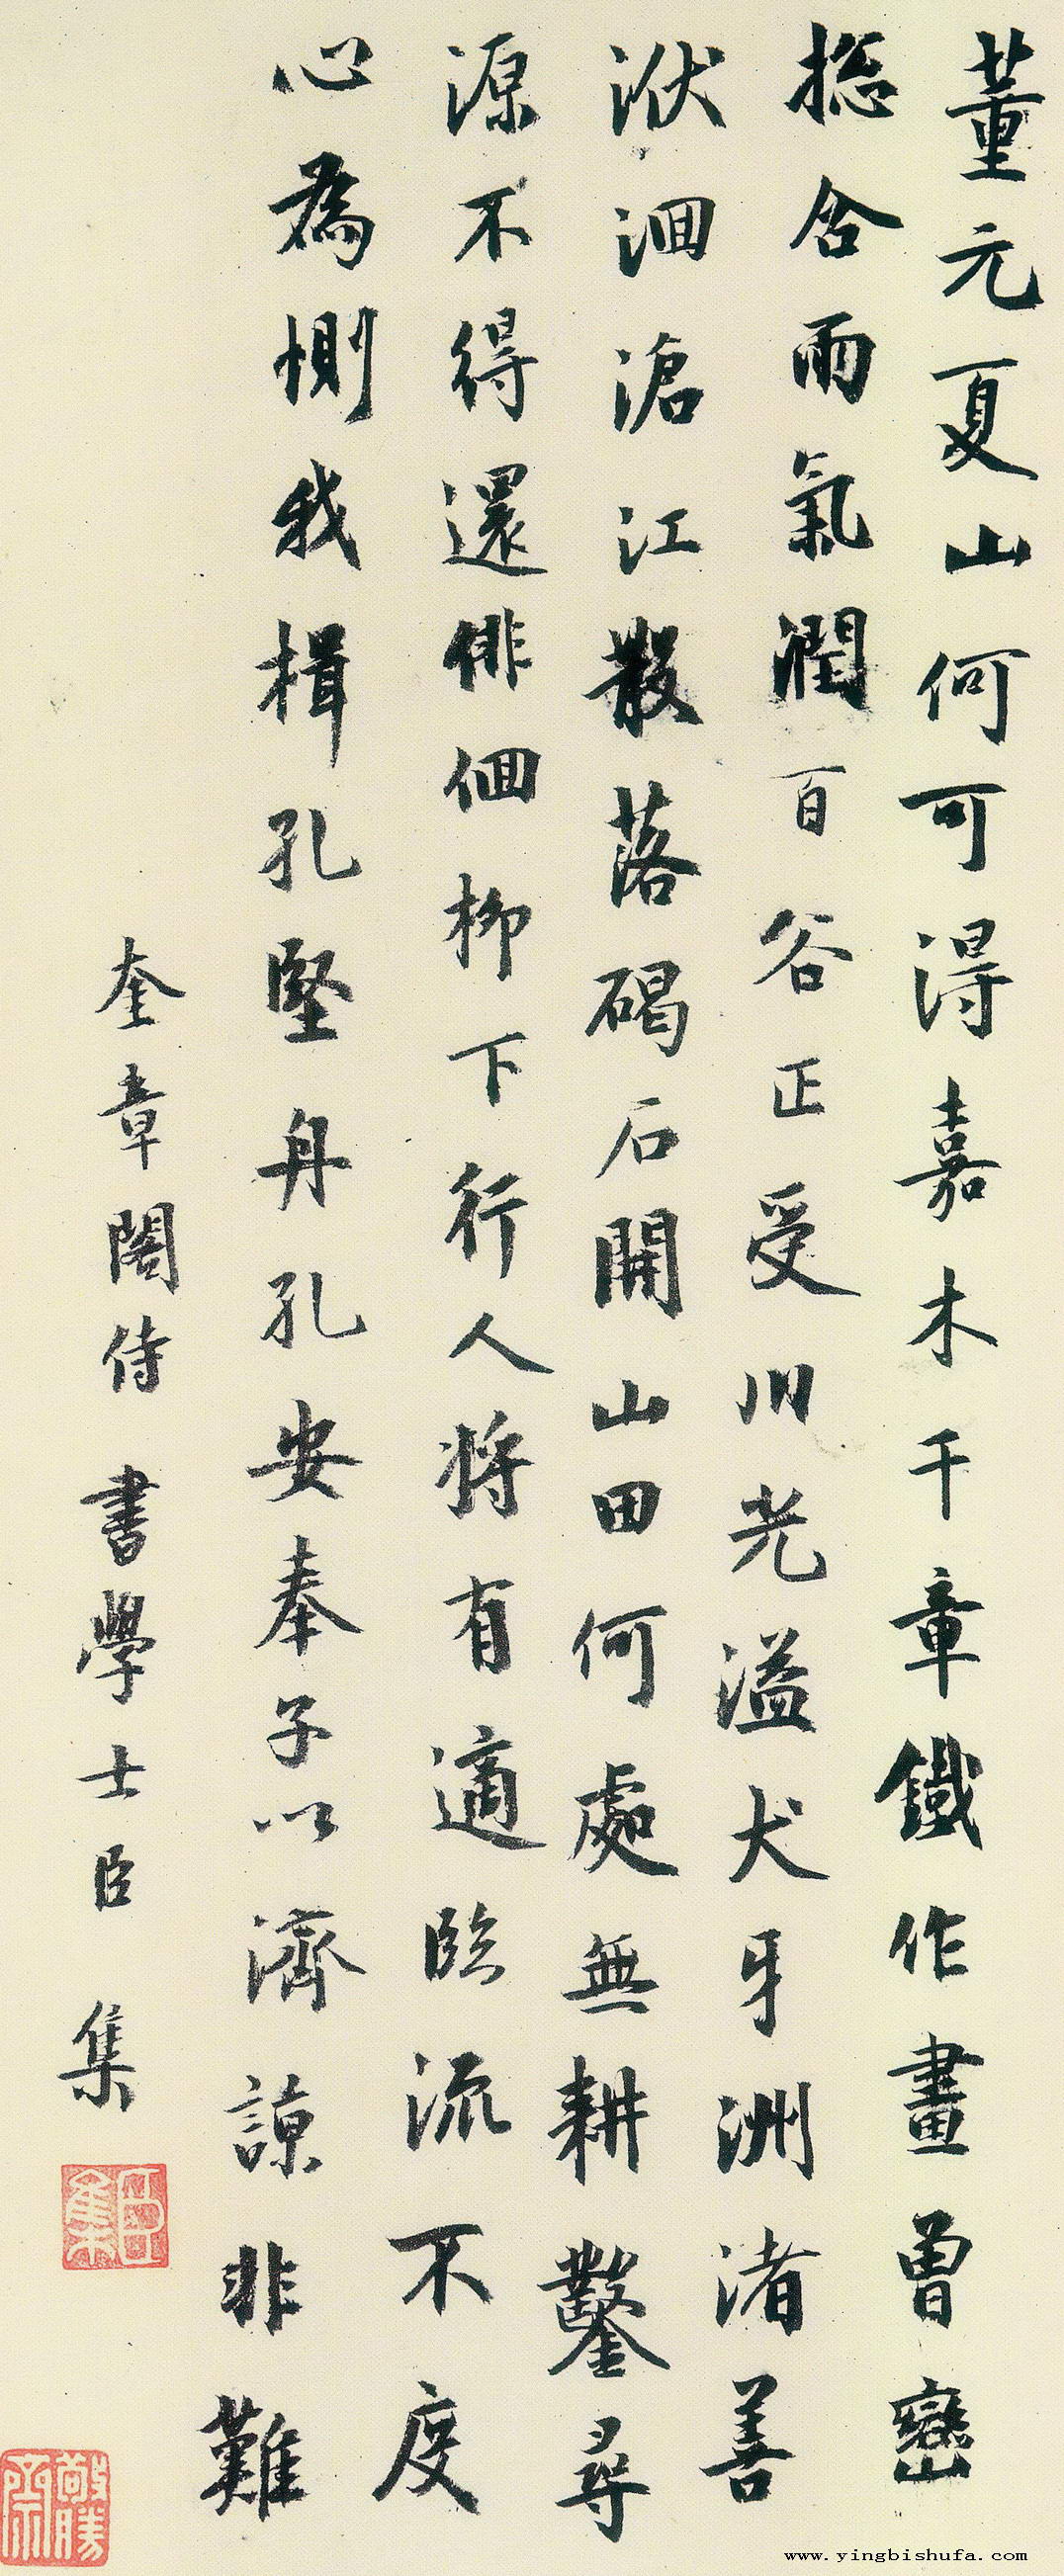 董元夏山何可得嘉木千章鐵作畫曾巒
捴含雨氣潤百谷正受川光溢犬牙洲渚善
洑洄滄江散落碣石開山田何處無耕鑿尋
源不得還俳佪柳下行人将有適臨流不度
心為惻我楫孔堅舟孔安奉子以濟諒非難
奎章閣侍書學士臣集
臣集
www.yingbishufa.com